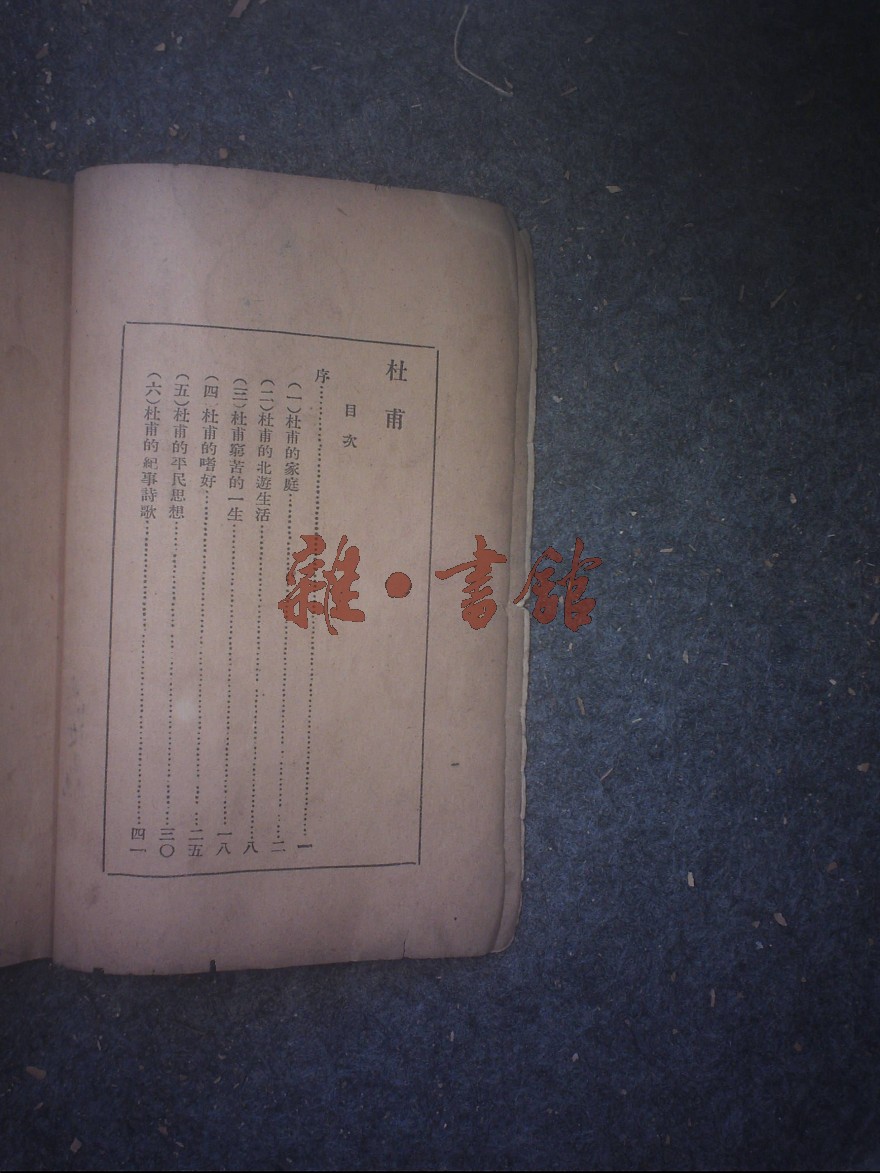 杜甫
目次
序⋯⋯⋯⋯一
(一)杜甫的家庭⋯⋯⋯⋯二
(二)杜甫的北遊生活⋯⋯⋯⋯八
(三)杜甫窮苦的一生⋯⋯⋯⋯一八
(四 杜甫的嗜好⋯⋯⋯⋯二五
(五)杜甫的平民思想⋯⋯⋯⋯三〇
(六)杜甫的紀事詩歌⋯⋯⋯⋯四一
雜·書館